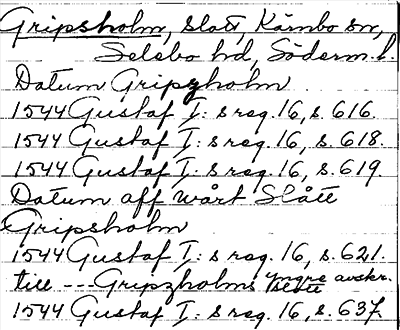 Gripsholm, slott, Kärnbo sn,
Selebo hd, Söderm. l.
Datum Gripzholm
1544 Gustaf I: s reg. 16, s. 616.
1544 Gustaf I: s reg. 16, s. 618.
1544 Gustaf I: s reg. 16, s. 619.
Datum aff wårt Slått
Gripsholm
1544 Gustaf I: s reg. 16, s. 621.
till --- Gripzholms slått yngre avskr.
1544 Gustaf I: s reg. 16, s. 637.